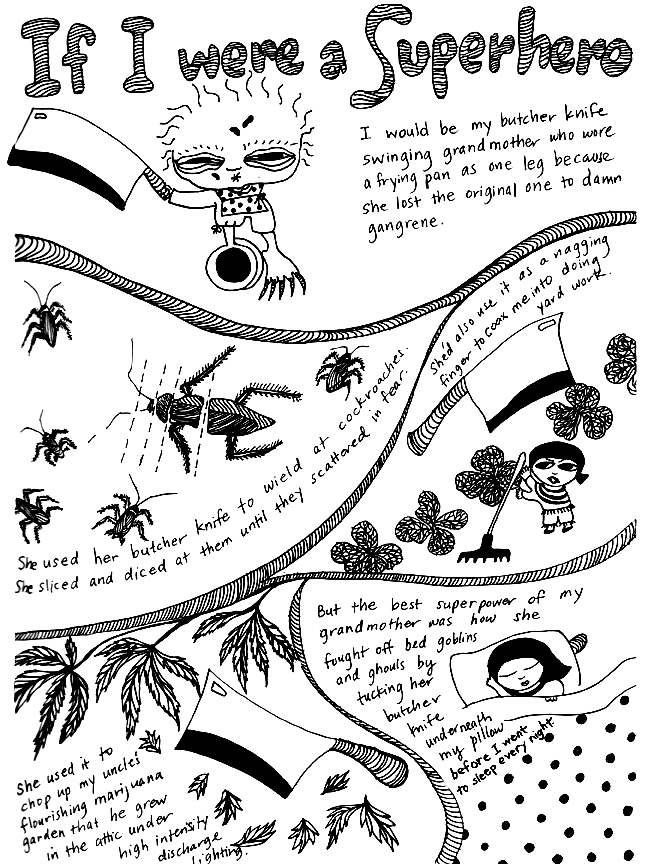 If I were a Superhero
I would be my butcher knife
swinging grandmother who wore
a frying pan as one leg because
she lost the original one to damn
gangrene.
She'd also use it as a nagging
finger to coax me into doing
yard work.
She used her butcher knife to wield at cockroaches.
She sliced and diced at them until they scattered in fear.
But the best superpower of my
grandmother was how she
fought off bed goblins
and ghouls by
tucking her
butcher
knife
underneath
my pillow
before I went
to sleep every night.
She used it to
chop up my uncles'
flourishing marijuana
garden that he grew
in the attic under
high intensity
discharge
lighting.